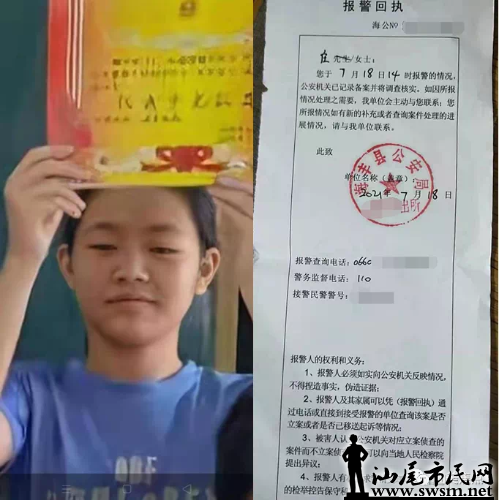 报警回执
海公№
庄 先生/女士：
您于 7 月 18 日 14 时报警的情况，
公安机关已记录备案并将调查核实。如因所报
情况处理之需要，我单位会主动与您联系；您
所报情况如有新的补充或者查询案件处理的进
展情况，请与我单位联系。
此致
单位名称（盖章）：
海丰县公安局
2021年 7 月 18 日
报警查询电话：0660
警务监督电话：110
接警民警警号：
报警人的权利和义务：
1、报警人必须如实向公安机关反映情况，
不得捏造事实，伪造证据；
2、报警人及其家属可以凭《报警回执》通
过电话或直接到接受报警的单位查询该案是否
立案或者是否已移送起诉等情况；
3、被害人认 公安机关对应立案侦查的
案件而不立案侦 可以向当地人民检察院
提出异议；
4、报警人有
的检举控告保守秘
汕尾市民网
www.swsm.net